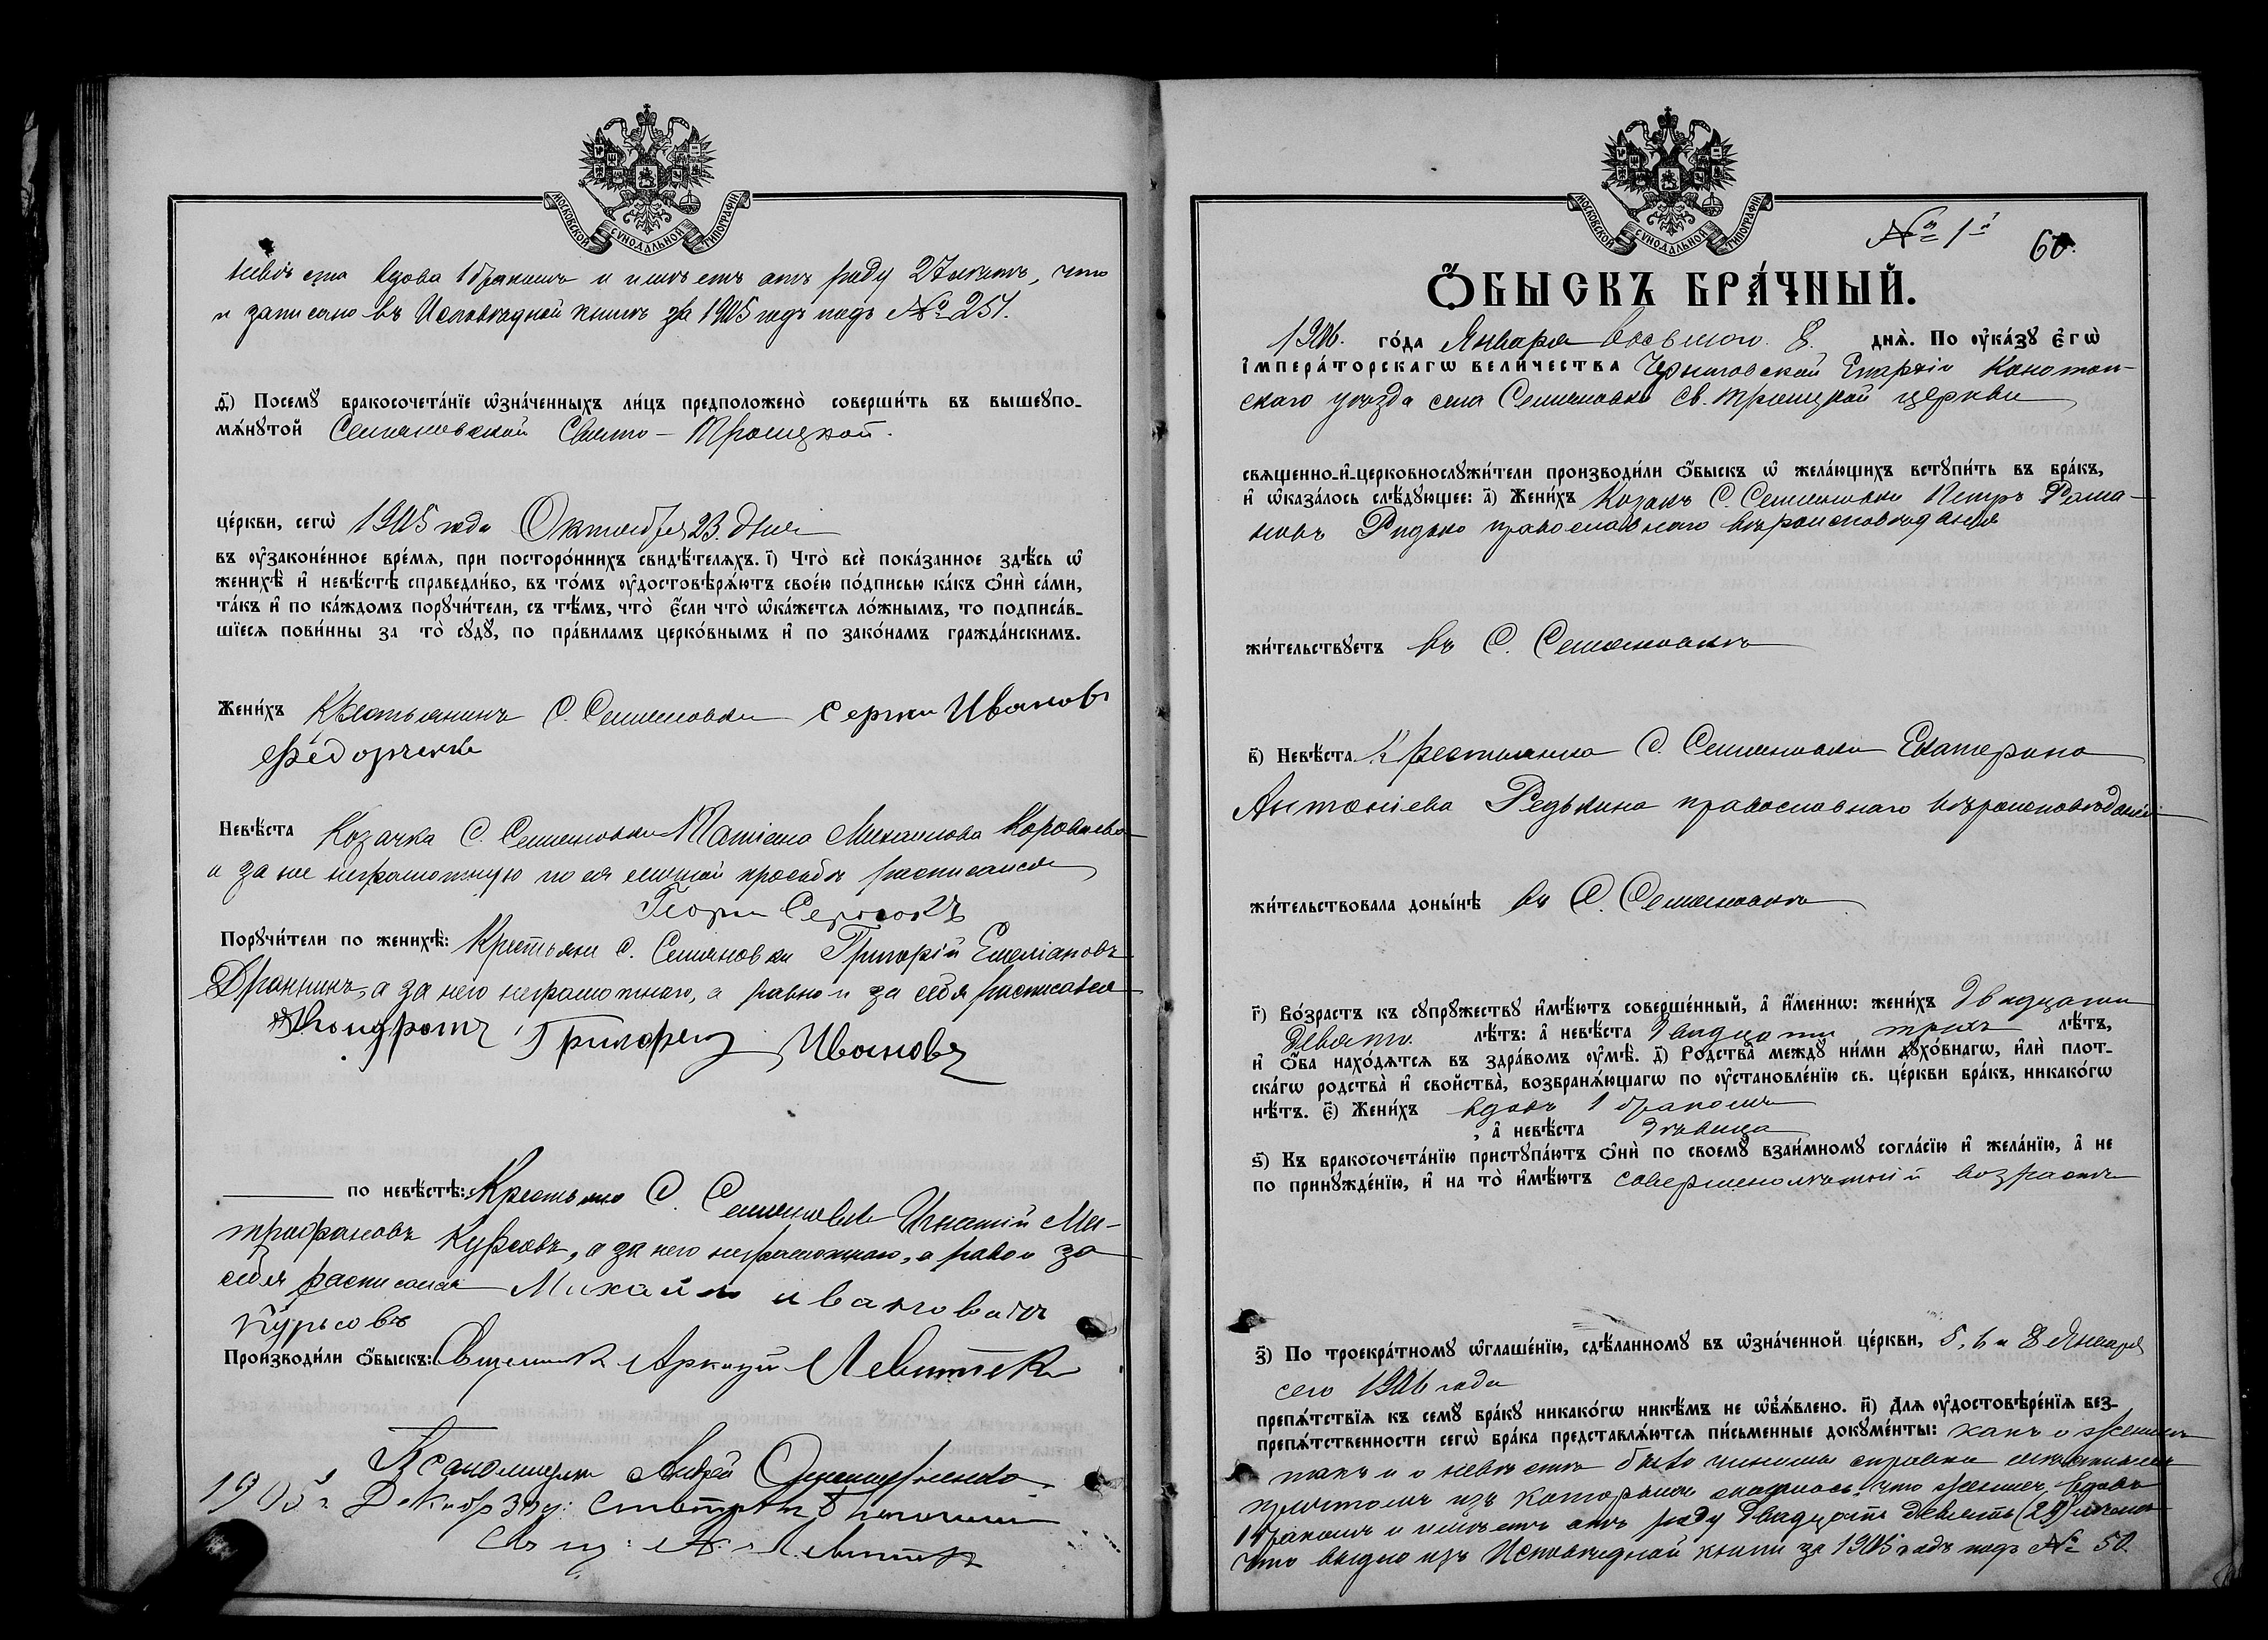 МОСКОВСКОЙ СѴНОДАЛЬНОЙ ТИПОГРАФІИ
невѣста вдова 1 бракомъ и имѣетъ отъ роду 27 лѣтъ, что
и записано въ Исповѣдной книгѣ за 1905 годъ подъ № 251.
д҃) Посемꙋ бракосочета́нїе ѡ҆зна́ченныхъ ли́цъ предположено̀ соверши́ть въ вышеꙋпо-
мѧ́нꙋтой Семяновской Свято-Троицкой.
це́ркви, сегѡ̀ 1905 года Октября 23. дня
въ ᲂу҆законе́нное вре́мѧ, при посторо́ннихъ свидѣ́телѧхъ. і҃) Что̀ всѐ пока́занное здѣ́сь ѡ҆
женихѣ̀ и҆ невѣ́стѣ справедли́во, въ то́мъ ᲂу҆достовѣрѧ́ютъ свое́ю по́дписью ка́къ ѻ҆нѝ са́ми,
та́къ и҆ по ка́ждомъ порꙋчи́тели, съ тѣ́мъ, что̀ є҆́сли что̀ ѡ҆ка́жетсѧ ло́жнымъ, то подписа́в-
шїесѧ пови́нны за то̀ сꙋдꙋ̀, по пра́виламъ церко́внымъ и҆ по зако́намъ гражда́нскимъ.
Жени́хъ Крестьянинъ С. Семяновки Сергѣй Ивановъ
Федорченко
Невѣ́ста Козачка С. Семяновки Татіана Михаилова
и за нее неграмотную по ея личной просьбѣ росписался
Порꙋчи́тели по женихѣ̀: Крестьяни С. Семяновки Григорій Емеліановъ
а за него неграмотнаго, а равно и за себя росписался
Кондратъ Григорьев Ивановъ
по невѣ́стѣ: Крестьяни С. Семяновки Игнатій Ми-
трофановъ Курсовъ, а за него неграмотнаго, а равно и за
себя росписался Михаилъ ивановичъ
Курсовъ
Произвōди́ли ѻ҆́быскъ: Священникъ Аркадій Левитскій
Псаломщикъ Андрей
1905 г. Декабр 3 дня:
Свящ: А. Левитскій
МОСКОВСКОЙ СѴНОДАЛЬНОЙ ТИПОГРАФІИ
№ 1й
60.
Ѻ҆БЫСКЪ БРА́ЧНЫЙ.
1906. го́да Января Восьмого. 8. днѧ̀. По ᲂу҆ка́зꙋ є҆гѡ̀
і҆мпера́торскагѡ вели́чества Черниговской Епархіи Конотоп-
скаго уѣзда села Семяновки Св. Троицкой церкви
свѧщенно-и҆-церковнослꙋжи́тели производи́ли ѻ҆́быскъ ѡ҆ жела́ющихъ встꙋпи́ть въ бра́къ,
и҆ ѡ҆каза́лось слѣ́дꙋющее: а҃) Жени́хъ Козакъ С. Семяновки Петръ Рома-
новъ Ридько православнаго вѣроисповѣданія
жи́тельствꙋетъ въ С. Семяновкѣ
в҃) Невѣ́ста Крестьянка С. Семяновки Екатерина
Антоніева Редькина православнаго вѣроисповѣданія
жи́тельствовала доны́нѣ въ С. Семяновкѣ
г҃) Во́зрастъ къ сꙋпрꙋ́жествꙋ и҆мѣ́ютъ соверше́нный, а҆ и҆́меннѡ: жени́хъ двадцати
девяти лѣ́тъ: а҆ невѣ́ста двадцати трехъ лѣ́тъ,
и҆ ѻ҆́ба нахо́дѧтсѧ въ здра́вомъ ᲂу҆мѣ̀. д҃) Родства̀ междꙋ̀ ни́ми дꙋхо́внагѡ, и҆лѝ плот-
ска́гѡ родства̀ и҆ свойства̀, возбранѧ́ющагѡ по ᲂу҆становле́нїю св. це́ркви бра́къ, никако́гѡ
нѣ́тъ. є҃) Жени́хъ вдовъ 1 бракомъ
, а҆ невѣ́ста дѣвица
ѕ҃) Къ бракосочета́нїю пристꙋпа́ютъ ѻ҆нѝ по своемꙋ̀ взаи́мномꙋ согла́сїю и҆ жела́нїю, а҆ не
по принꙋжде́нїю, и҆ на то̀ и҆мѣ́ютъ совершеннолѣтній возрастъ
з҃) По троекра́тномꙋ ѡ҆глаше́нїю, сдѣ́ланномꙋ въ ѡ҆зна́ченной це́ркви, 5, 6 и 8 Января
сего 1906 года
препѧ́тствїѧ къ семꙋ̀ бра́кꙋ никако́гѡ никѣ́мъ не ѡ҆б̾ѧ́влено. и҃) Длѧ ᲂу҆достовѣре́нїѧ без-
препѧ́тственности сегѡ̀ бра́ка представлѧ́ютсѧ пи́сьменные докꙋме́нты: какъ о женихѣ
такъ и о невѣстѣ справка
изъ которыхъ оказалось, что женихъ вдовъ
1 бракомъ и имѣетъ отъ роду двадцать девять (29) лѣтъ
что видно изъ Исповѣдной книги за 1905 годъ подъ № 50.